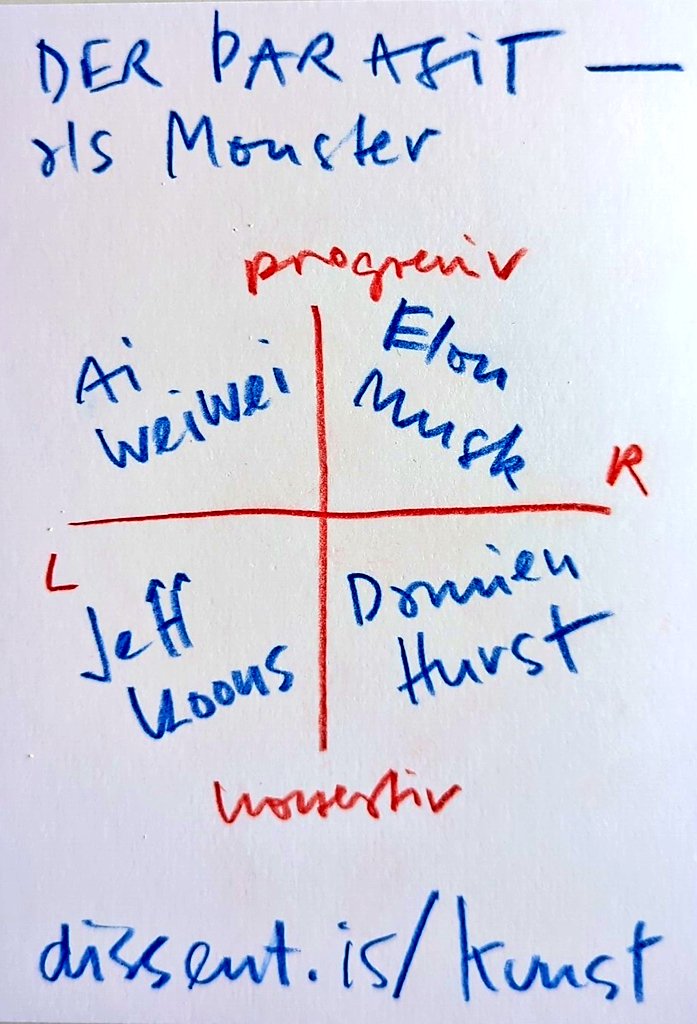 DER PARASIT —
als Monster
progressiv
Ai
Weiwei
Elon
Musk
R
L
Jeff
Koons
Damien
Hurst
konsertiv
dissent.is/kunst